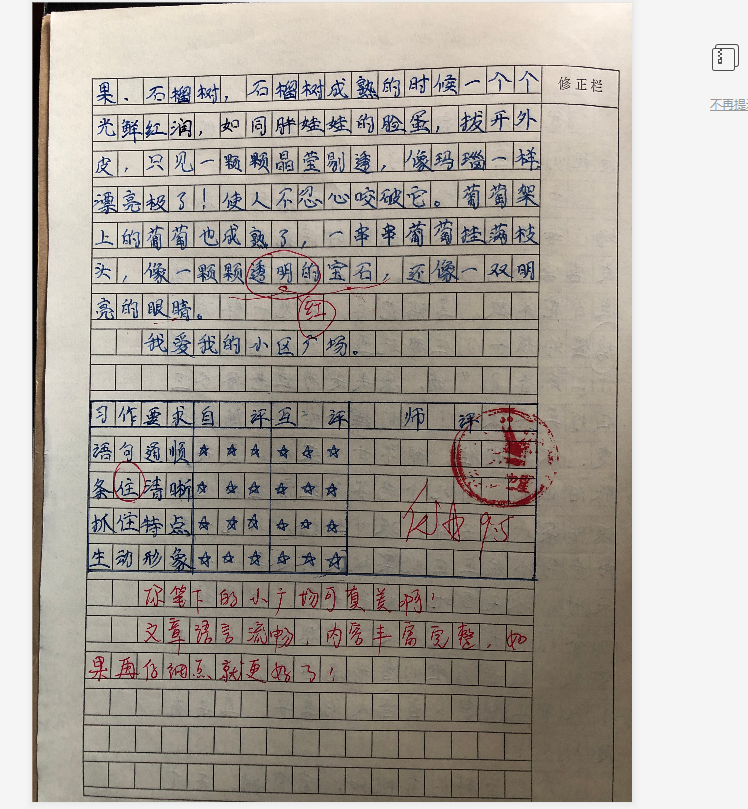 修正栏
果、石榴树，石榴树成熟的时候一个个
光鲜红润，如同胖娃娃的脸蛋，拔开外
皮，只见一颗颗晶莹剔透，像玛瑙一样
漂亮极了！使人不忍心咬破它。葡萄架
上的葡萄也成熟了，一串串葡萄挂满枝
头，像一颗颗透明的宝石，还像一双明
红
亮的眼睛。
我爱我的小区广场。
习作要求 自评 互评 师评
语句通顺 ☆☆☆ ☆☆☆
条住清晰 ☆☆☆ ☆☆☆
抓住特点 ☆☆☆ ☆☆☆
生动形象 ☆☆☆ ☆☆☆
9.5
你笔下的小广场可真美啊！
文章语言流畅，内容丰富完整，如
果再仔细点就更好了！
不再提